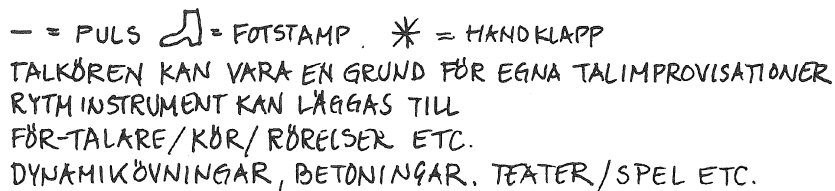 — = PULS = FOTSTAMP. * = HANDKLAPP
TALKÖREN KAN VARA EN GRUND FÖR EGNA TALIMPROVISATIONER
RYTMINSTRUMENT KAN LÄGGAS TILL
FÖR-TALARE/KÖR/RÖRELSER ETC.
DYNAMIKÖVNINGAR, BETONINGAR, TEATER/SPEL ETC.